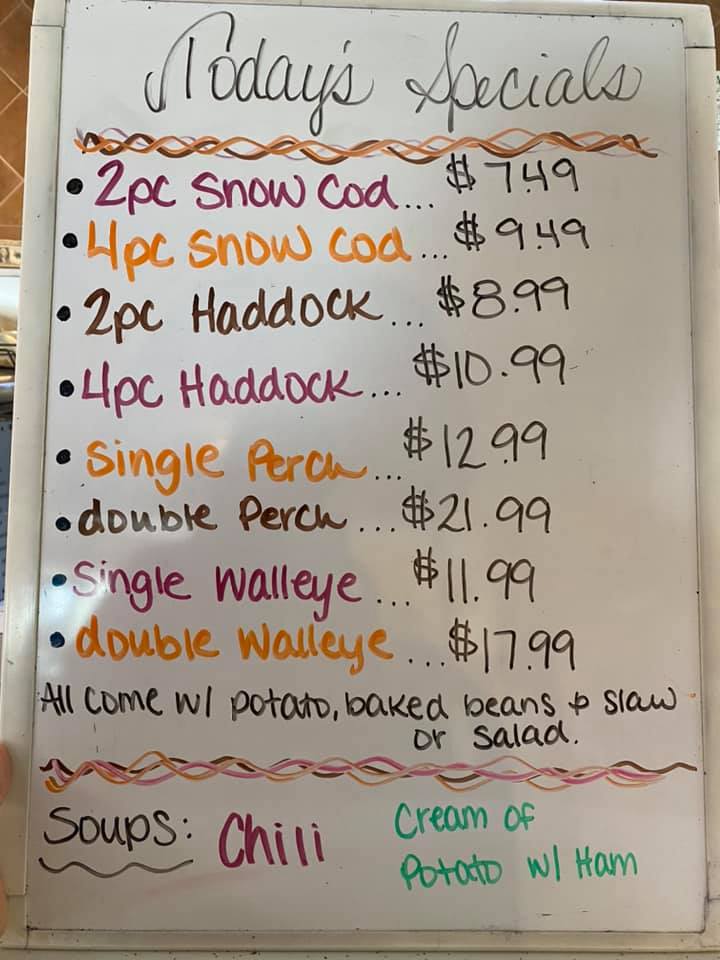 Today's Specials
• 2pc Snow Cod... $7.49
• 4pc Snow Cod... $9.49
• 2pc Haddock... $8.99
• 4pc Haddock... $10.99
• Single Perch... $12.99
• double Perch... $21.99
• Single Walleye... $11.99
• double Walleye... $17.99
All come w/ potato, baked beans & slaw
or salad.
Soups: Chili
Cream of
Potato w/ Ham